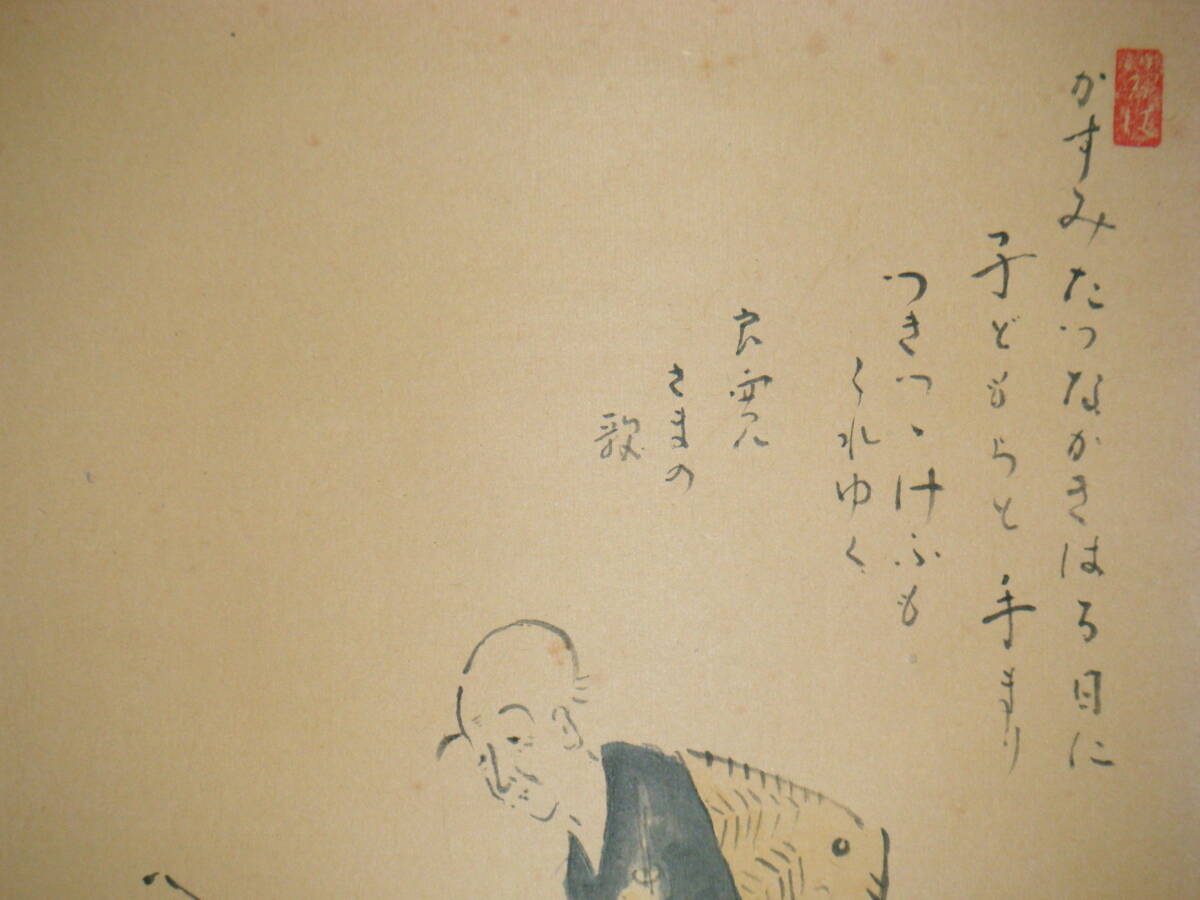 かすみたつなかきはる日に
子どもらと手まり
つきつゝけふも
くれゆく
良寛
さまの
歌